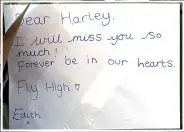 Dear Harley.
I will miss you so
much!
Forever be in our hearts.
Fly High ♡
Edith
x